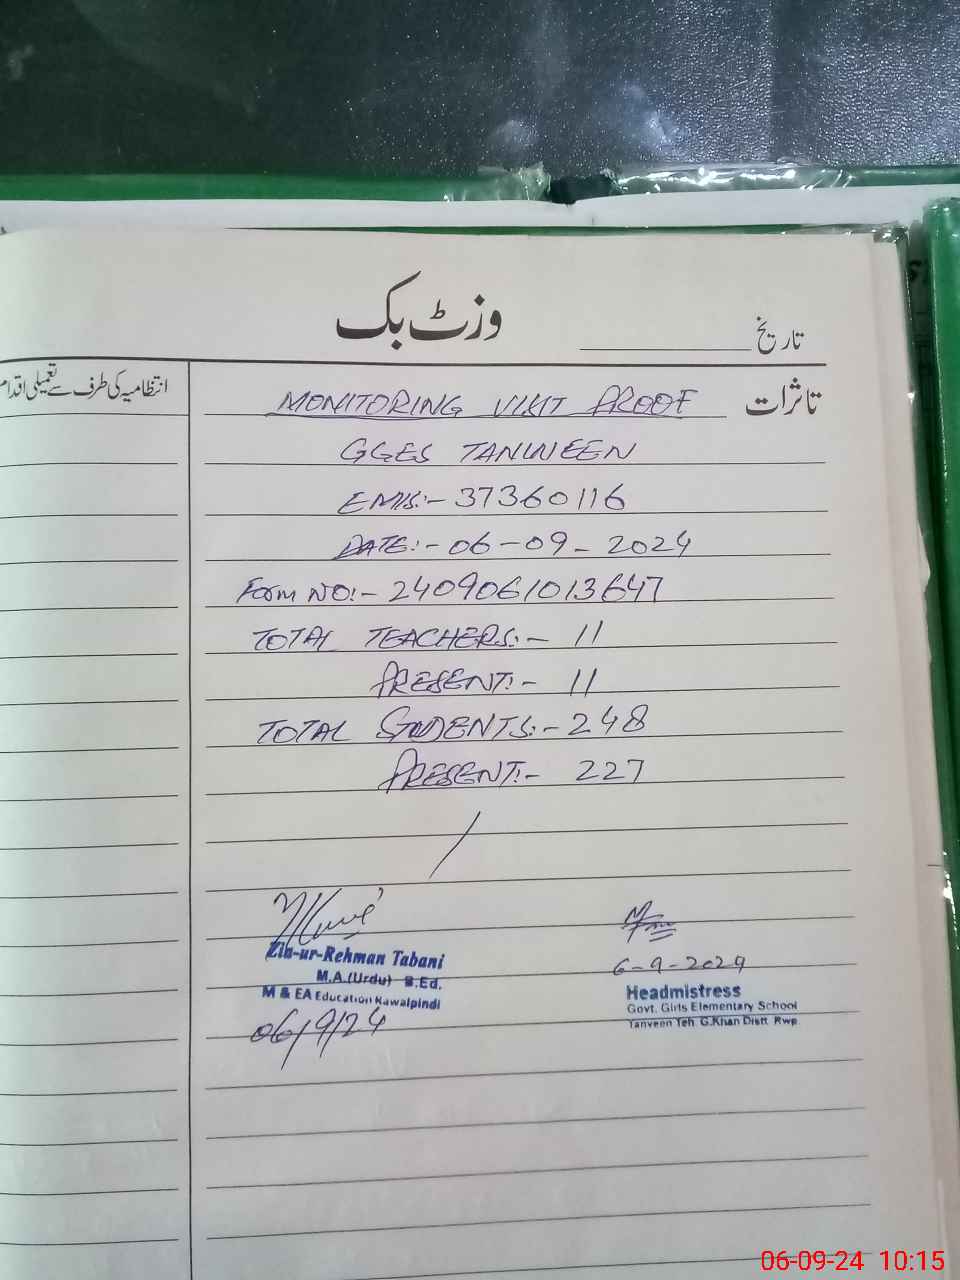 وزٹ بک
تاریخ
تاثرات
انتظامیہ کی طرف سے تعمیلی اقدام
MONITORING VISIT PROOF
GGES TANWEEN
EMIS:- 37360116
DATE:- 06-09-2024
Form NO:- 2409061013647
TOTAL TEACHERS:- 11
PRESENT:- 11
TOTAL STUDENTS:- 248
PRESENT:- 227
Zia-ur-Rehman Tabani
M.A.(Urdu) B.Ed.
M & EA Education Rawalpindi
06/9/24
6-9-2024
Headmistress
Govt. Girls Elementary School
Tanveen Teh. G.Khan Distt. Rwp.
06-09-24 10:15